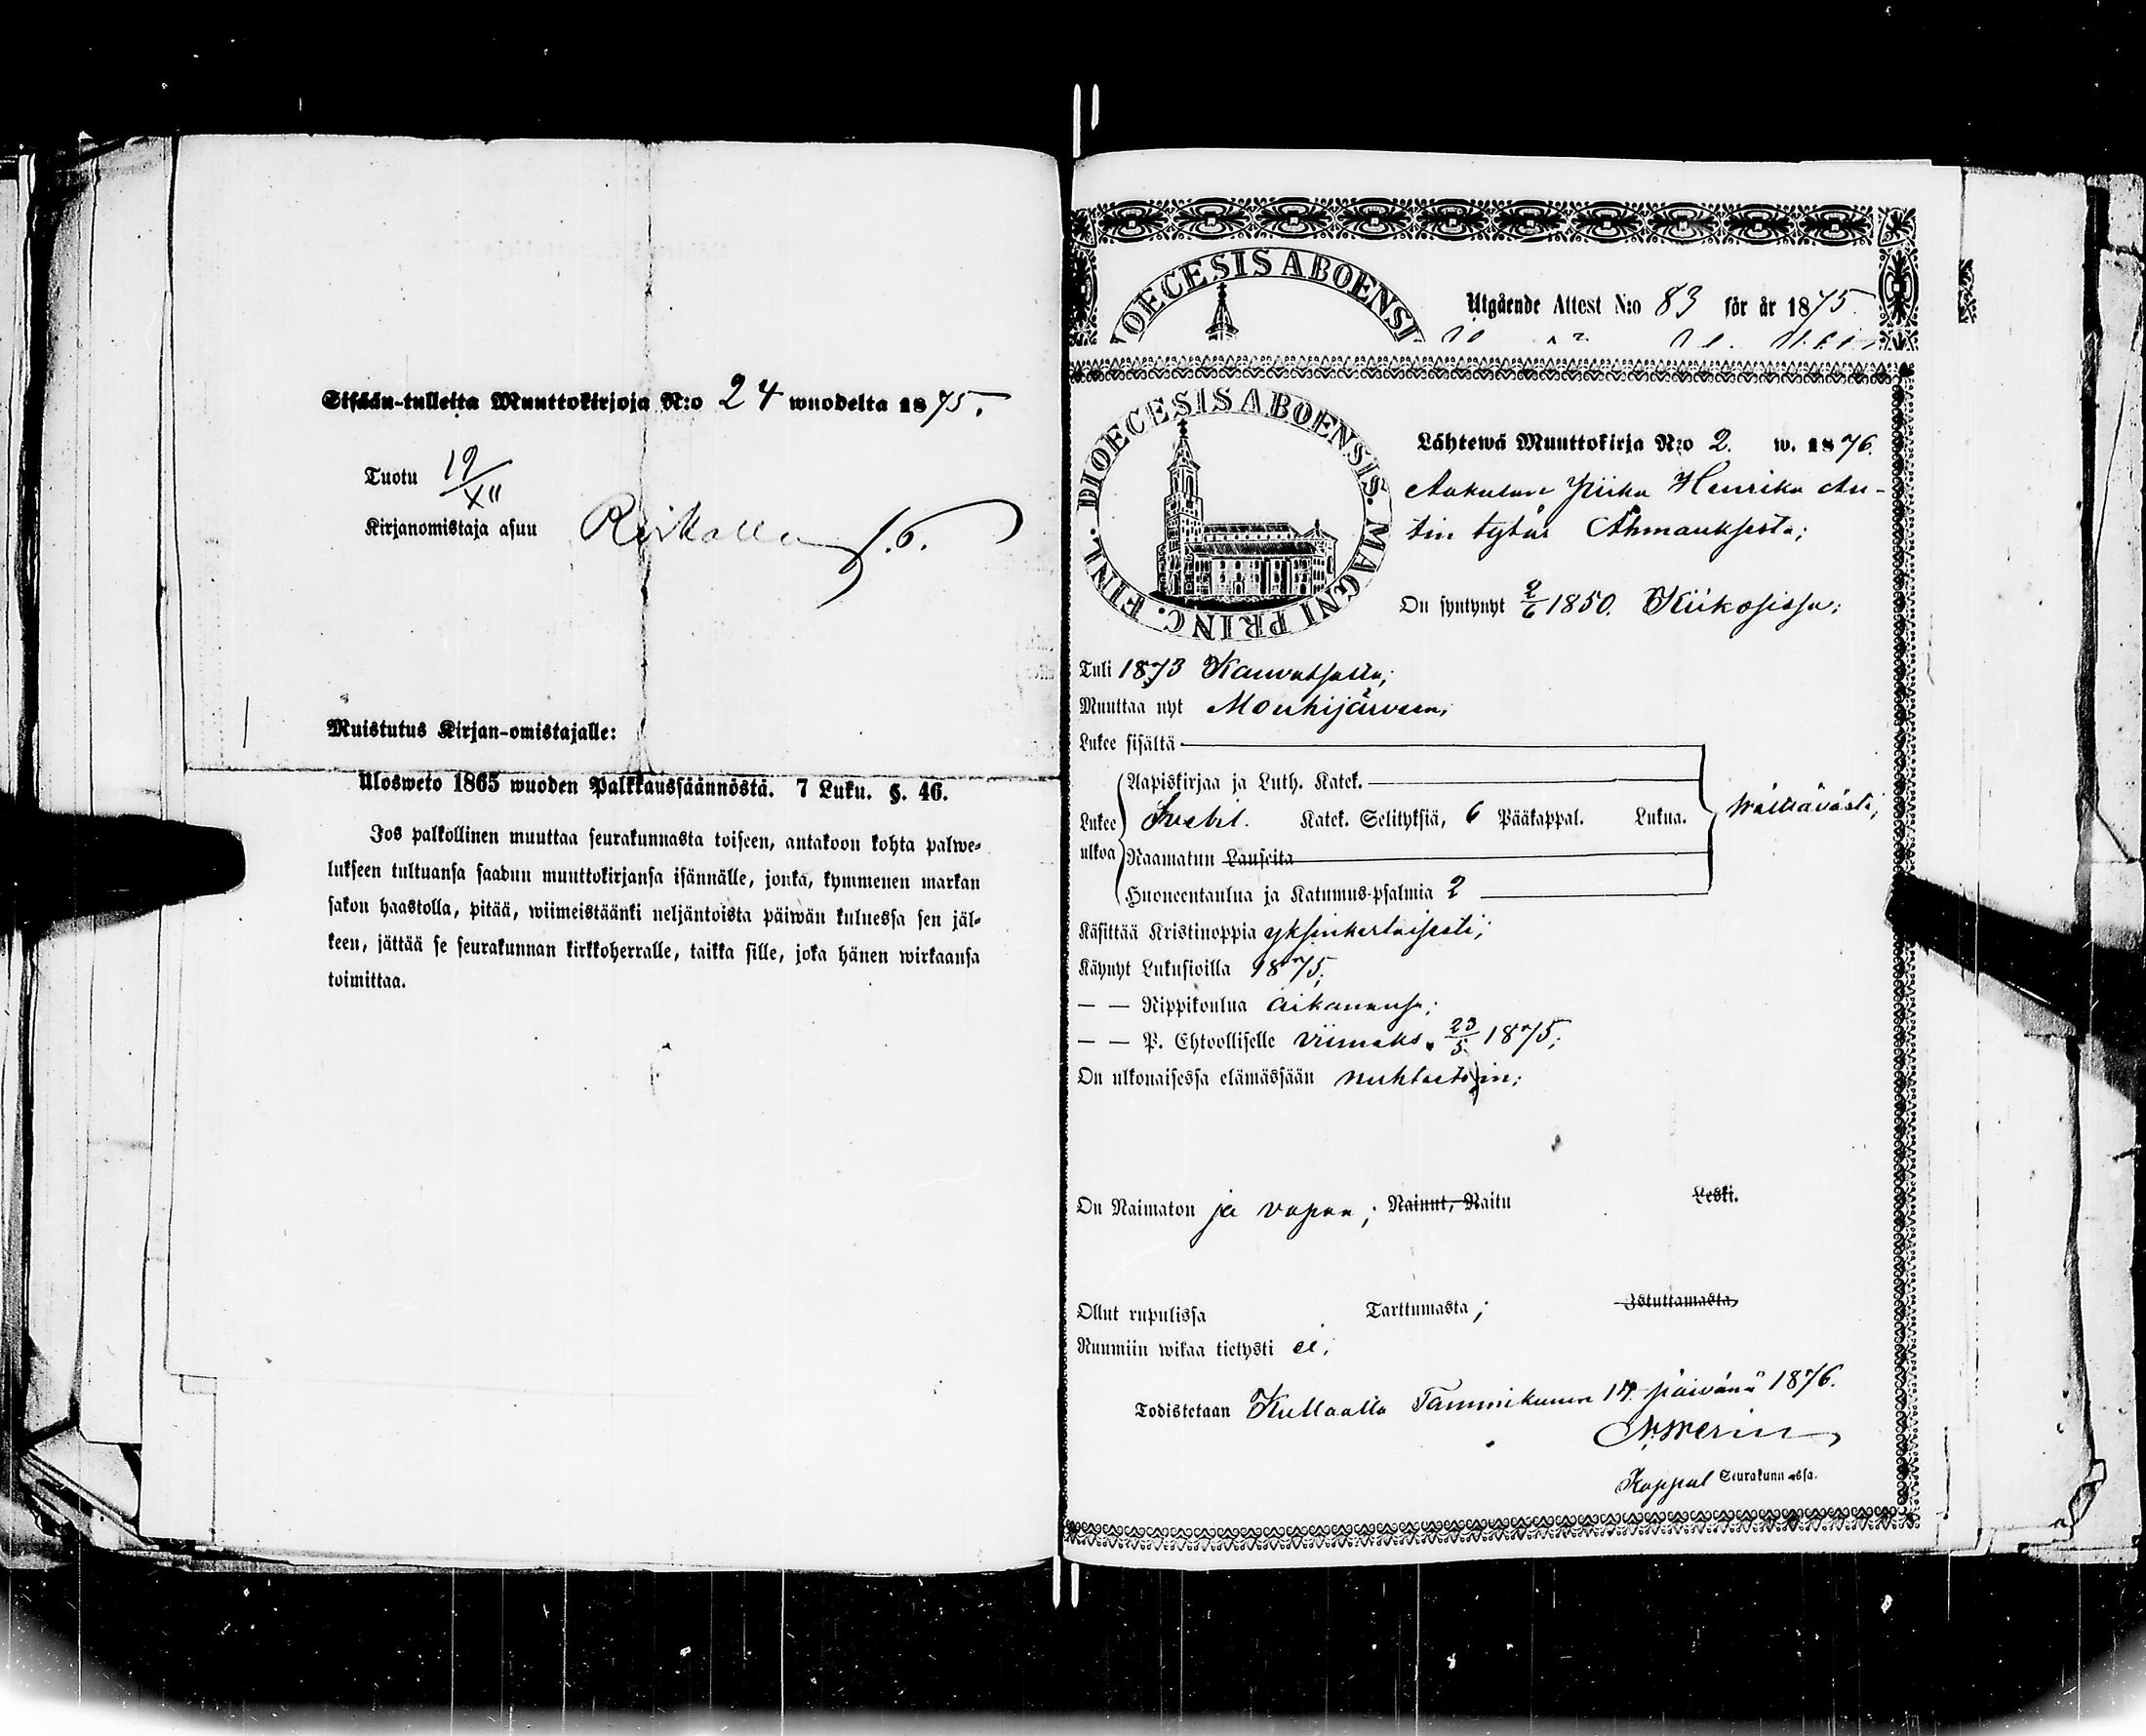 Sisään-tulleita Muuttokirjoja N:o 24 wuodelta 1875.
Tuotu 19/XII
Kirjanomistaja asuu
Muistutus Kirjan-omistajalle:
Ulosweto 1865 wuoden Palkkaussäännöstä. 7 Luku. §. 46.
Jos palkollinen muuttaa seurakunnasta toiseen, antakoon kohta palwe-
lukseen tultuansa saadun muuttokirjansa isännälle, jonka, kymmenen markan
sakon haastolla, pitää, wiimeistäänki neljäntoista päiwän kuluessa sen jäl-
keen, jättää se seurakunnan kirkkoherralle, taikka sille, joka hänen wirkaansa
toimittaa.
DIOECESIS ABOENSI
Utgående Attest N:o 83 för år 1875.
DIOECESIS ABOENSIS. MAGNI PRINC. FINL.
Lähtewä Muuttokirja N:o 2. w. 1876.
Piika Henrika An-
tin tytär Ahmauksesta;
On syntynyt 2/6 1850. Kiikosissa;
Tuli 1873 Kauvatsalta;
Muuttaa nyt Mouhijärveen;
Lukee sisältä
Aapiskirjaa ja Luth. Katek.
Lukee Svebil. Katek. Selityksiä, 6 Pääkappal. Lukua. Wälttävästi;
ulkoa Raamatun Lauseita
Huoneentaulua ja Katumus-psalmia 2
Käsittää Kristinoppia yksinkertaisesti;
Käynyt Lukusioilla 1875;
— — Rippikoulua aikanansa;
— — P. Ehtoolliselle viimeks. 23/5 1875;
On ulkonaisessa elämässään nuhteetoin;
On Naimaton ja vapaa; Nainut, Naitu Leski.
Ollut rupulissa Tarttumasta; Istuttamasta,
Ruumiin wikaa tietysti ei;
Todistetaan Kullaalla Tammikuun 14 päivänä 1876.
Kappal Seurakunnassa.